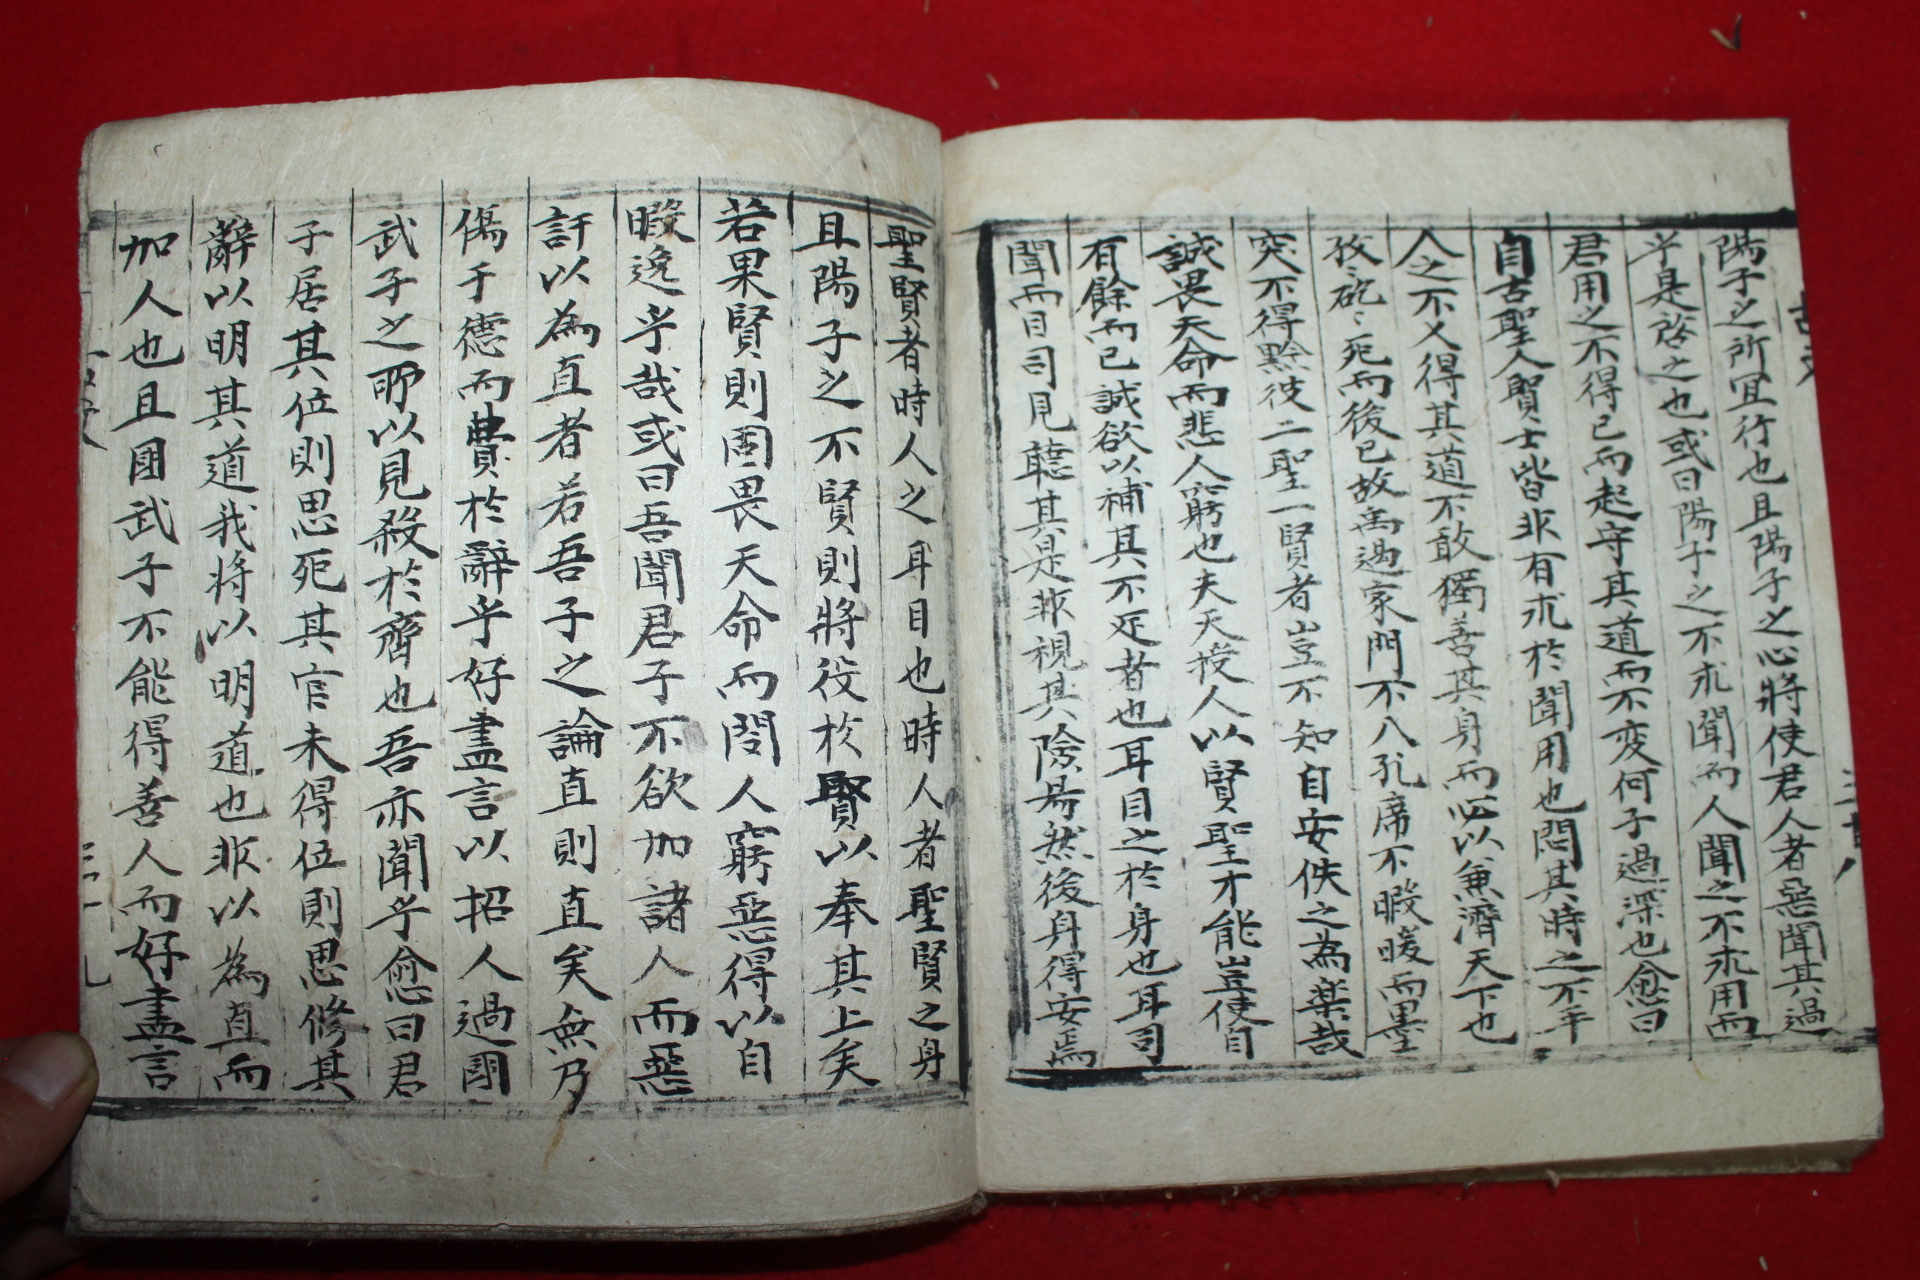 陽子之所冝行也且陽子之心將使君人者惡聞其過
乎是啓之也或曰陽子之不求聞而人聞之不求用而
君用之不得已而起守其道而不変何子過深也愈曰
自古聖人賢士皆非有求於聞用也悶其時之不平
人之不乂得其道不敢獨善其身而必以兼濟天下也
孜〻矻〻死而後已故禹過家門不入孔席不暇暖而墨
突不得黔彼二聖一賢者豈不知自安佚之為楽哉
誠畏天命而悲人窮也夫天授人以賢聖才能豈使自
有餘而已誠欲以補其不足者也耳目之於身也耳司
聞而目司見聽其是非視其險易然後身得安焉
聖賢者時人之耳目也時人者聖賢之身
且陽子之不賢則將役於賢以奉其上矣
若果賢則固畏天命而閔人窮惡得以自
暇逸乎哉或曰吾聞君子不欲加諸人而惡
訐以為直者若吾子之論直則直矣無乃
傷于德而費於辭乎好盡言以招人過國
武子之所以見殺於齊也吾亦聞乎愈曰君
子居其位則思死其官未得位則思修其
辭以明其道我將以明道也非以為直而
加人也且国武子不能得善人而好盡言